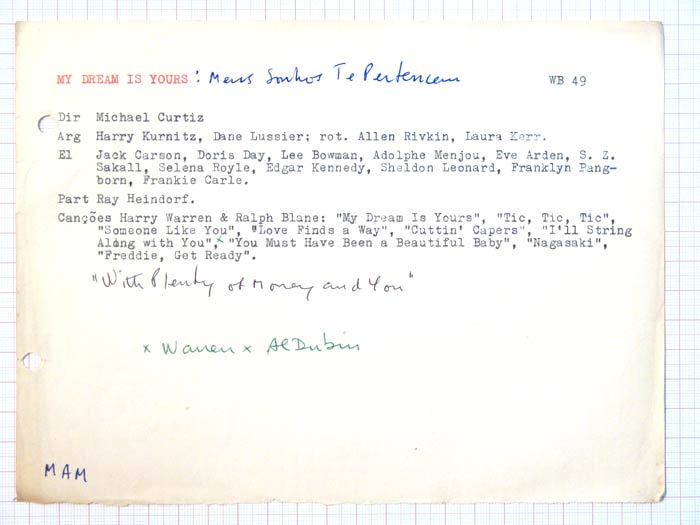 MY DREAM IS YOURS : Meus Sonhos Te Pertencem WB 49
Dir Michael Curtiz
Arg Harry Kurnitz, Dane Lussier; rot. Allen Rivkin, Laura Kerr.
El Jack Carson, Doris Day, Lee Bowman, Adolphe Menjou, Eve Arden, S. Z.
Sakall, Selena Royle, Edgar Kennedy, Sheldon Leonard, Franklyn Pang-
born, Frankie Carle.
Part Ray Heindorf.
Canções Harry Warren & Ralph Blane: "My Dream Is Yours", "Tic, Tic, Tic",
"Someone Like You", "Love Finds a Way", "Cuttin' Capers", "I'll String
Along with You",x "You Must Have Been a Beautiful Baby", "Nagasaki",
"Freddie, Get Ready".
"With Plenty of Money and You"
x Warren x Al Dubin
MAM